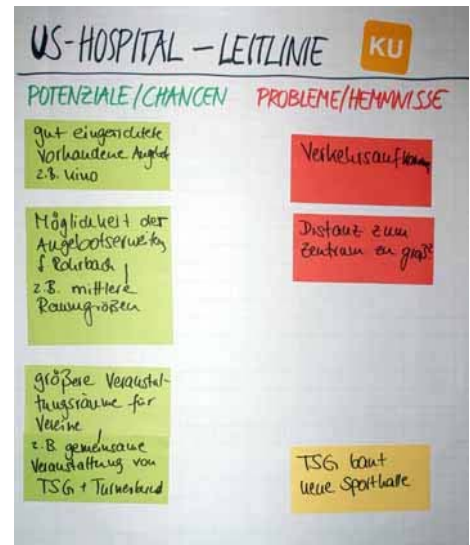 US-HOSPITAL – LEITLINIE
KU
POTENZIALE/CHANCEN
gut eingerichtete
vorhandene Angebote
z.B. Kino
Möglichkeit der
Angebotserweiterung
f Rohrbach
z.B. mittlere
Raumgrößen
größere Veranstal-
tungsräume für
Vereine
z.B. gemeinsame
Veranstaltung von
TSG + Turnerbund
PROBLEME/HEMMNISSE
Verkehrsaufkommen
Distanz zum
Zentrum zu groß?
TSG baut
neue Sporthalle